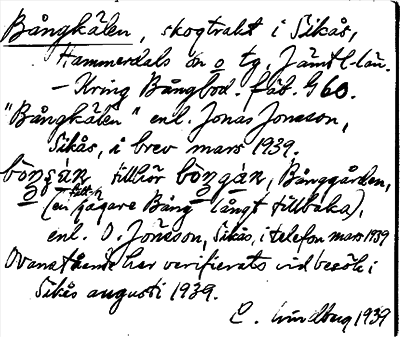 Bångkälen, skogtrakt i Sikås,
Hammerdals sn o tg, Jämtl. län.
– Kring Bångbod. fäb. G 60.
"Bångkälen" enl. Jonas Jonsson,
Sikås, i brev mars 1939.
tillhör Bånggården,
(en jägare Bång långt tillbaka),
enl. O. Jonsson, Sikås, i telefon mars 1939
Ovanstående har verifierats vid besök i
Sikås augusti 1939.
E. Lundberg 1939